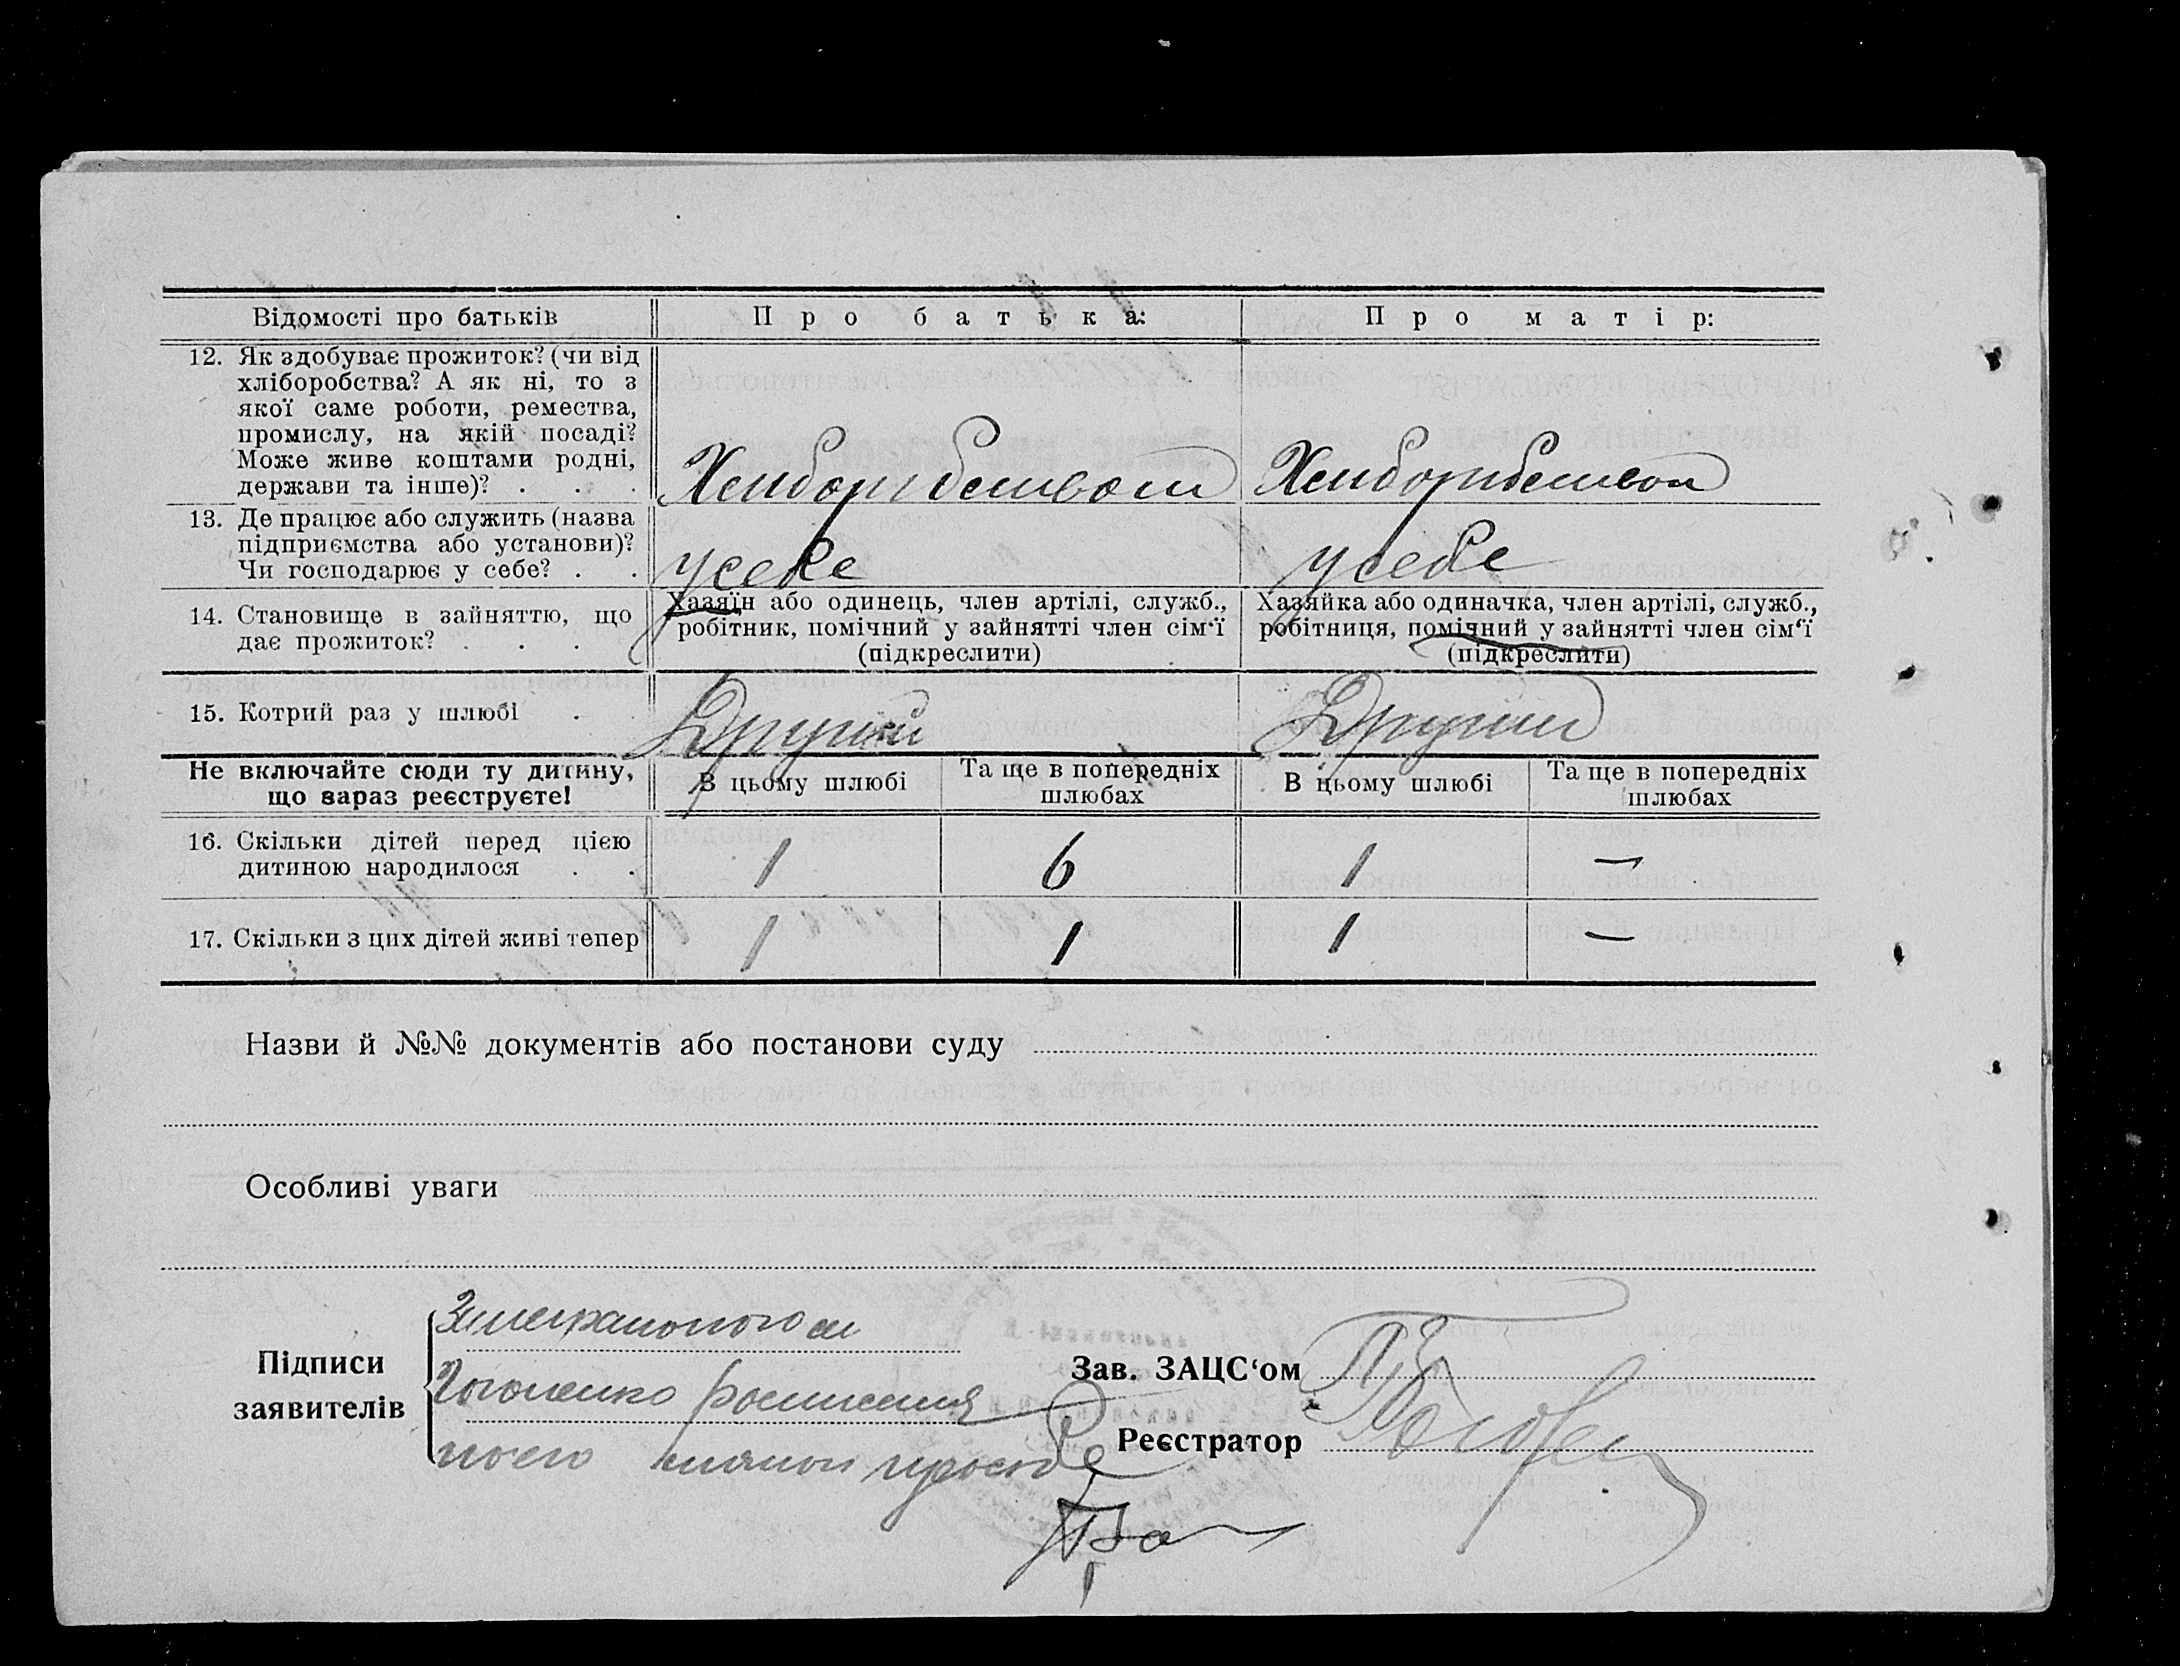 Відомості про батьків
Про батька:
Про матір:
12. Як здобуває прожиток? (чи від
хліборобства? А як ні, то з
якої саме роботи, ремества,
промислу, на якій посаді?
Може живе коштами родні,
держави та інше)? . . .
Хлиборобством
Хлиборобством
13. Де працює або служить (назва
підприємства або установи)?
Чи господарює у себе? . .
у себе
у себе
14. Становище в зайняттю, що
дає прожиток? . . .
Хазяїн або одинець, член артілі, служб.,
робітник, помічний у зайнятті член сім‘ї
(підкреслити)
Хазяйка або одиначка, член артілі, служб.,
робітниця, помічний у зайнятті член сім‘ї
(підкреслити)
15. Котрий раз у шлюбі . .
Другий
Другий
Не включайте сюди ту дитину,
що зараз реєструєте!
В цьому шлюбі
Та ще в попередніх
шлюбах
В цьому шлюбі
Та ще в попередніх
шлюбах
16. Скільки дітей перед цією
дитиною народилося . .
1
6
1
—
17. Скільки з цих дітей живі тепер
1
1
1
—
Назви й №№ документів або постанови суду
Особливі уваги
Підписи
заявителів
Зав. ЗАЦС‘ом
Реєстратор